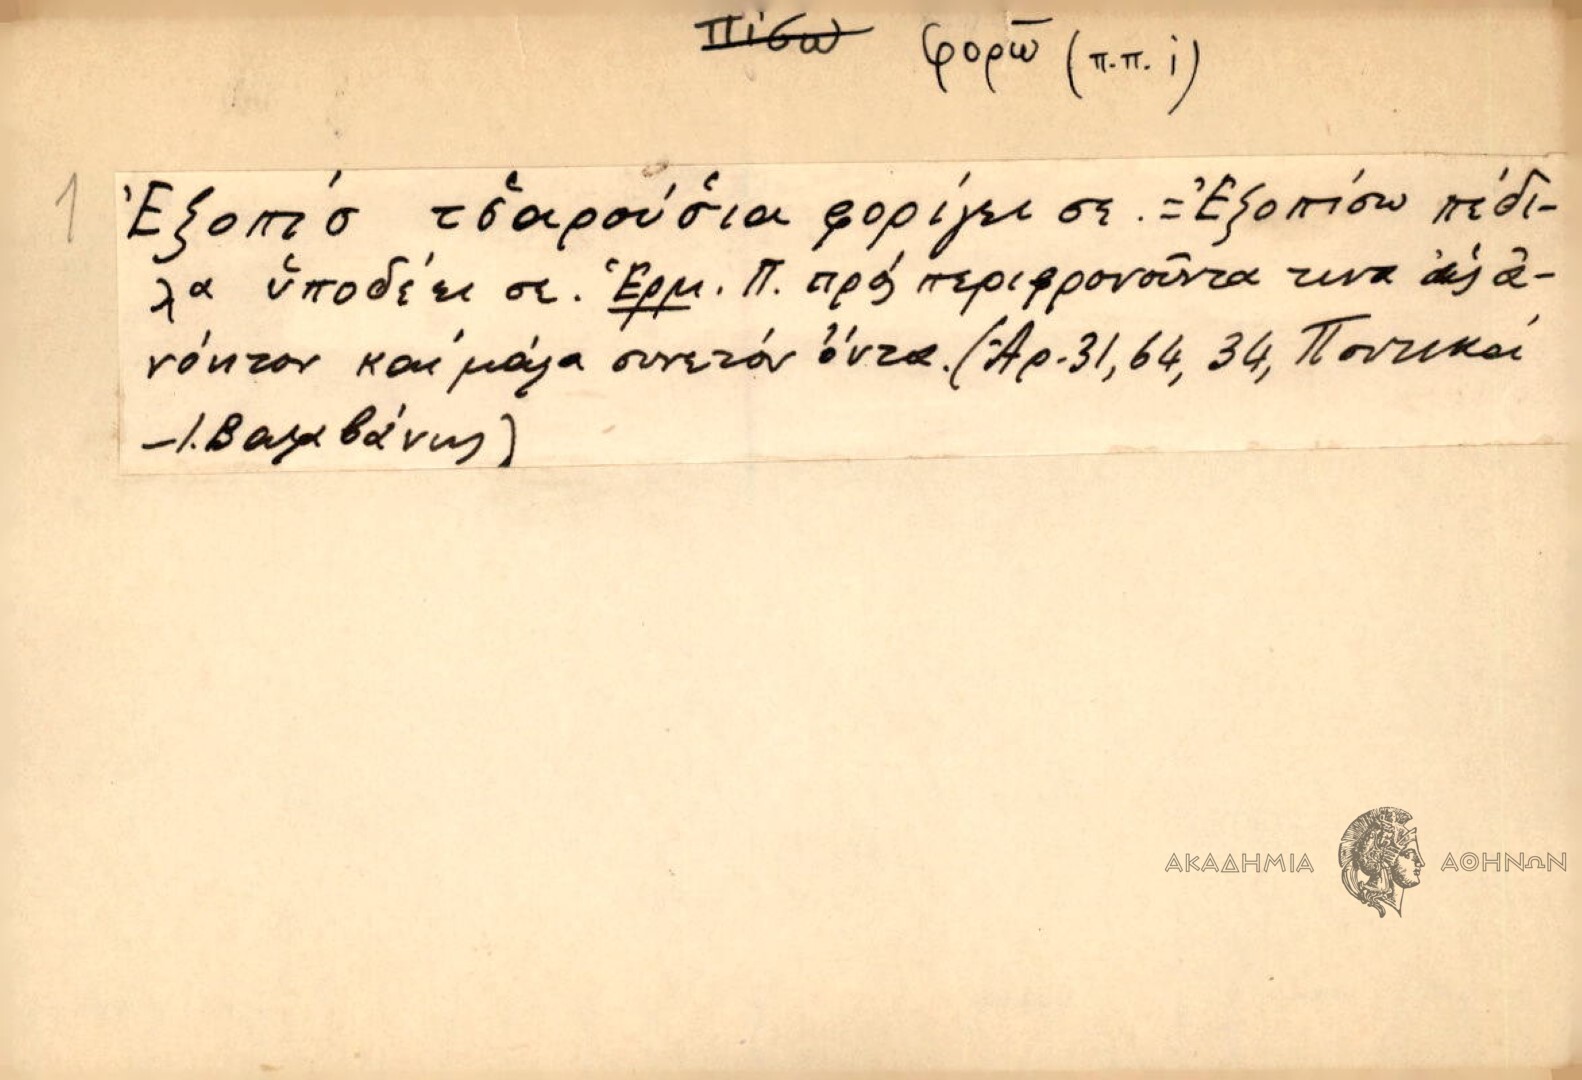 Πίσω φορῶ (π.π. i)
1 Ἐξοπίσ τσ̌αρούσ̌ια φορίζει σε. = Ἐξοπίσω πέδι-
λα ὑποδέει σε. Ἑρμ. Π. πρός περιφρονοῦντα τινα ὡς ἀ-
νόητον καί μάλα συνετόν ὄντα. (Ἀρ. 31, 64, 34, Ποντικαί
– Ι. Βαλαβάνης)
ΑΚΑΔΗΜΙΑ ΑΘΗΝΩΝ